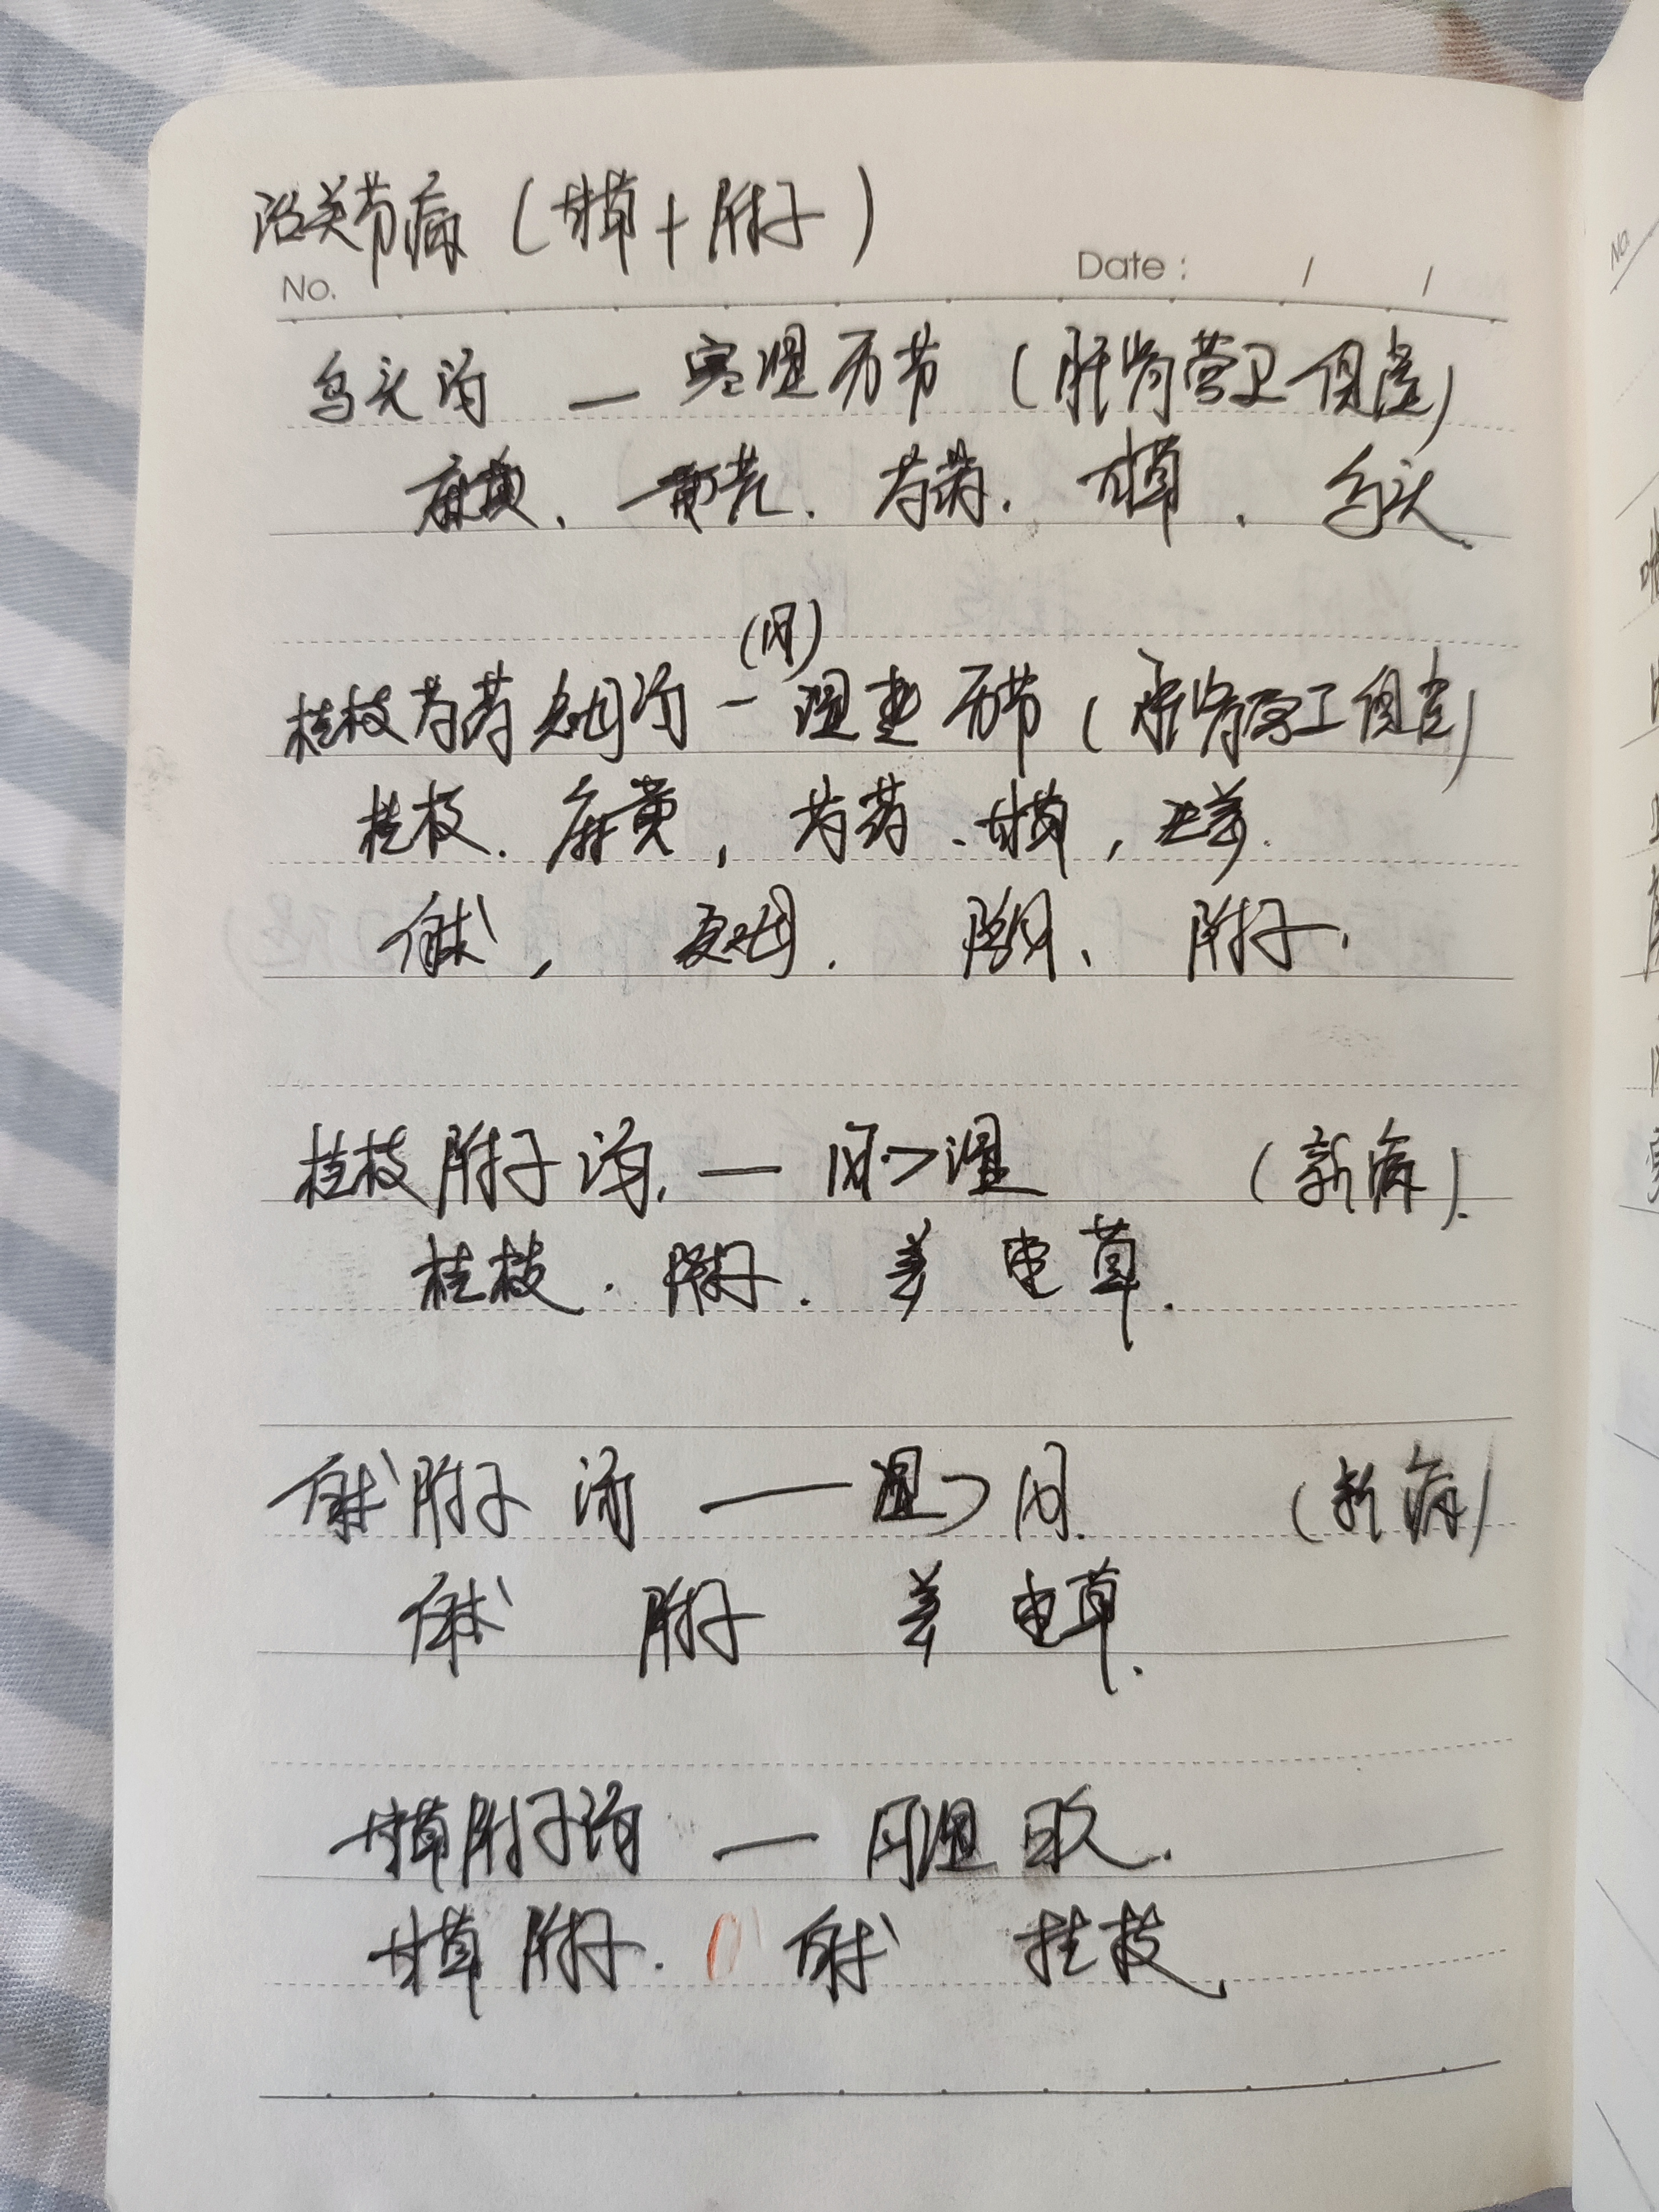 治关节病（甘草+附子）
No. Date: / /
乌头汤 — 寒湿历节（肝肾营卫俱虚）
麻黄、黄芪、芍药、甘草、乌头
(风)
桂枝芍药知母汤 — 湿热历节（肝肾营卫俱虚）
桂枝、麻黄，芍药、甘草，生姜.
白术，知母. 防风、附子.
桂枝附子汤. — 风>湿 （新病）.
桂枝. 附子. 姜 枣 草.
白术附子汤 — 湿>风. （新病）
白术 附子 姜 枣 草.
甘草附子汤 — 风湿日久.
甘草 附子. 白术 桂枝.
No.